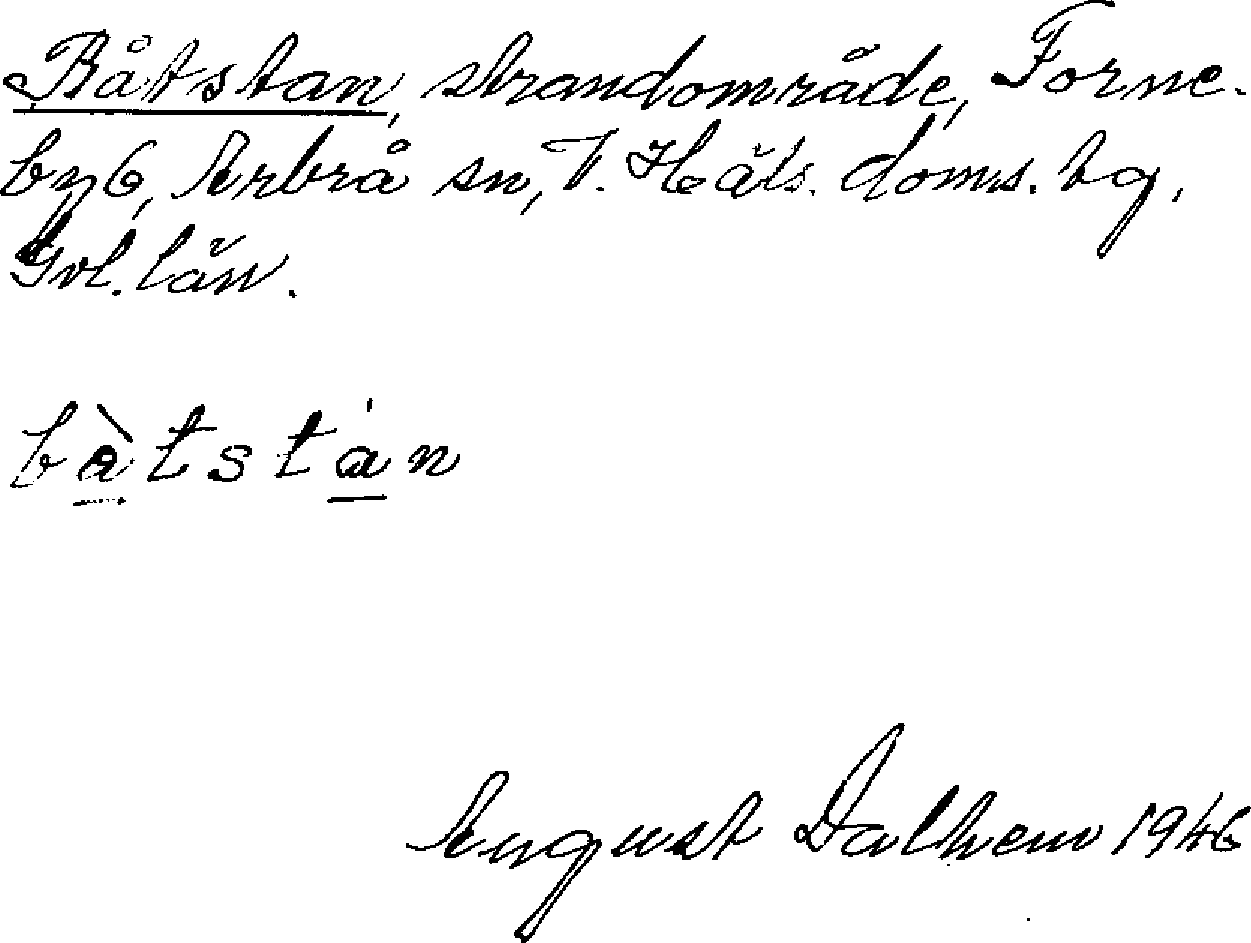 Båtstan, strandområde, Forne-
by 6, Arbrå sn, V. Häls. doms. tg,
Gvl. län.
bàtstán
August Dalhem 1946